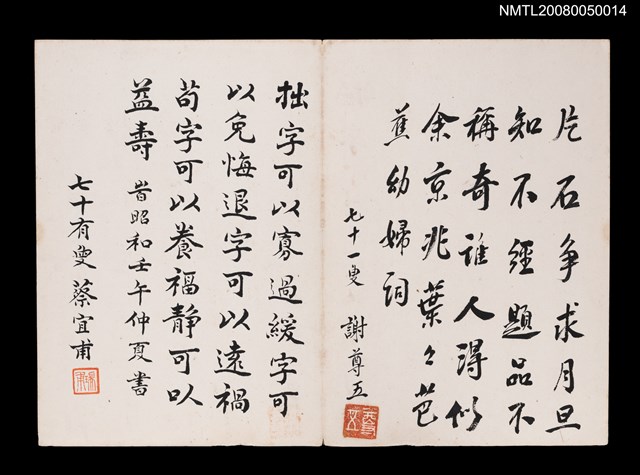 NMTL20080050014
片石争求月旦
知不經題品不
稱奇誰人得似
余京兆葉々芭
蕉幼婦詞
七十一叟 謝尊五
拙字可以寡過緩字可
以免悔退字可以遠禍
苟字可以養福靜可以
益壽 昔昭和壬午仲夏書
七十有叟蔡宜甫